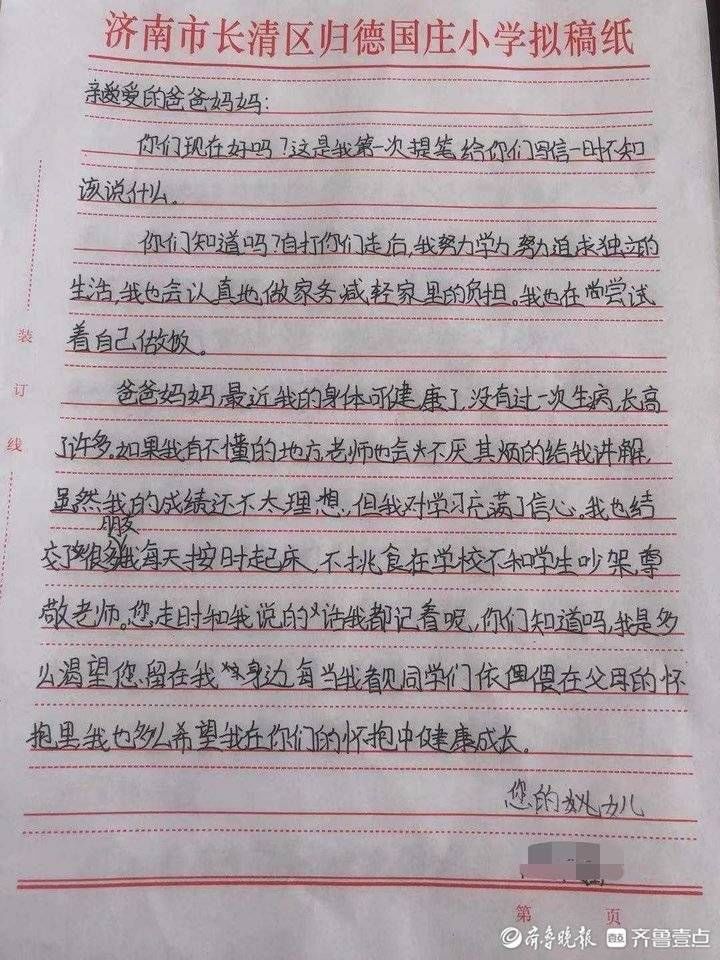 济南市长清区归德国庄小学拟稿纸
亲爱的爸爸妈妈:
你们现在好吗?这是我第一次提笔给你们写信一时不知
该说什么。
你们知道吗?自打你们走后,我努力学力努力追求独立的
生活,我也会认真地做家务,减轻家里的负担。我也在尝试
着自己做饭。
爸爸妈妈,最近我的身体可健康了,没有过一次生病,长高
了许多。如果我有不懂的地方,老师也会不厌其烦的给我讲解,
虽然我的成绩还不太理想,但我对学习充满了信心。我也结
朋友
交了很多我每天按时起床,不挑食在学校不和学生吵架,尊
敬老师。您走时和我说的话我都记着呢,你们知道吗,我是多
么渴望您留在我身边,每当我看见同学们依偎在父母的怀
抱里,我也多么希望我在你们的怀抱中健康成长。
您的女儿
装
订
线
第 页
齐鲁晚报 壹点 齐鲁壹点